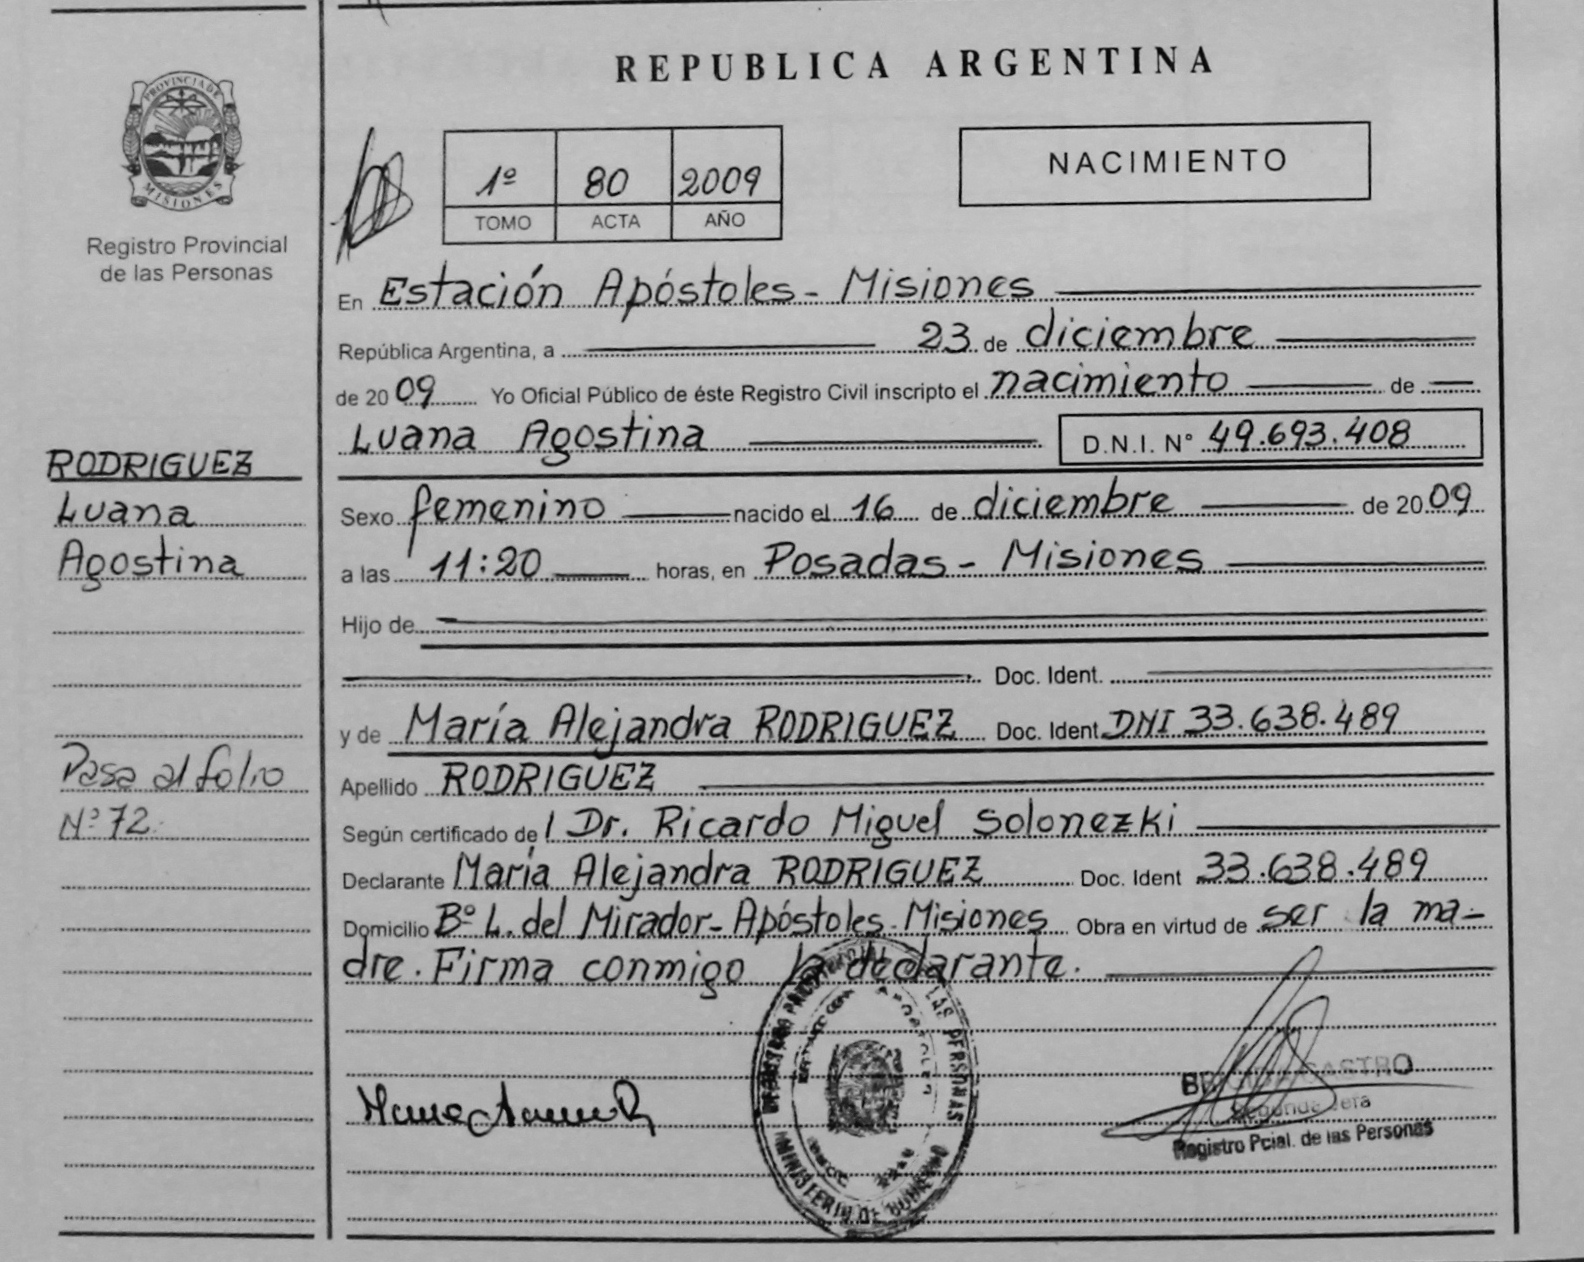 REPUBLICA ARGENTINA
PROVINCIA DE
MISIONES
Registro Provincial
de las Personas
1º 80 2009
TOMO ACTA AÑO
NACIMIENTO
En Estación Apóstoles - Misiones
República Argentina, a 23 de diciembre
de 2009 Yo Oficial Público de éste Registro Civil inscripto el nacimiento de
Luana Agostina D.N.I. Nº 49.693.408
RODRIGUEZ
Luana
Agostina
Sexo femenino nacido el 16 de diciembre de 2009
a las 11:20 horas, en Posadas - Misiones
Hijo de
Doc. Ident.
y de María Alejandra RODRIGUEZ Doc. Ident DNI 33.638.489
Pasa al folio
Nº 72
Apellido RODRIGUEZ
Según certificado de Dr. Ricardo Miguel Solonezki
Declarante María Alejandra RODRIGUEZ Doc. Ident 33.638.489
Domicilio Bº L. del Mirador - Apóstoles - Misiones Obra en virtud de ser la ma-
dre. Firma conmigo la declarante.
LAS PERSONAS
MINISTERIO DE GOBIERNO
CASTRO
Registro Pcial. de las Personas